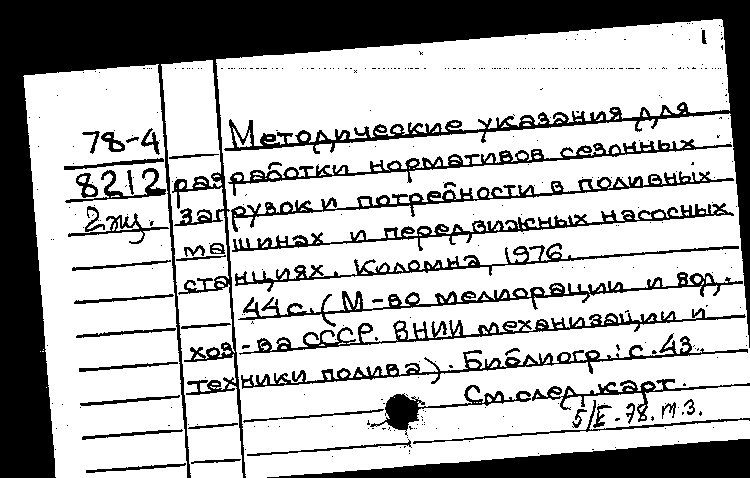 1
78-4 Методические указания для
8212 разработки нормативов сезонных
2 экз. загрузок и потребности в поливных
машинах и передвижных насосных
станциях. Коломна, 1976.
44 с. (М-во мелиорации и вод.
хоз-ва СССР. ВНИИ механизации и
техники полива). Библиогр.: с. 43.
См. след. карт.
5/II-78. т.з.